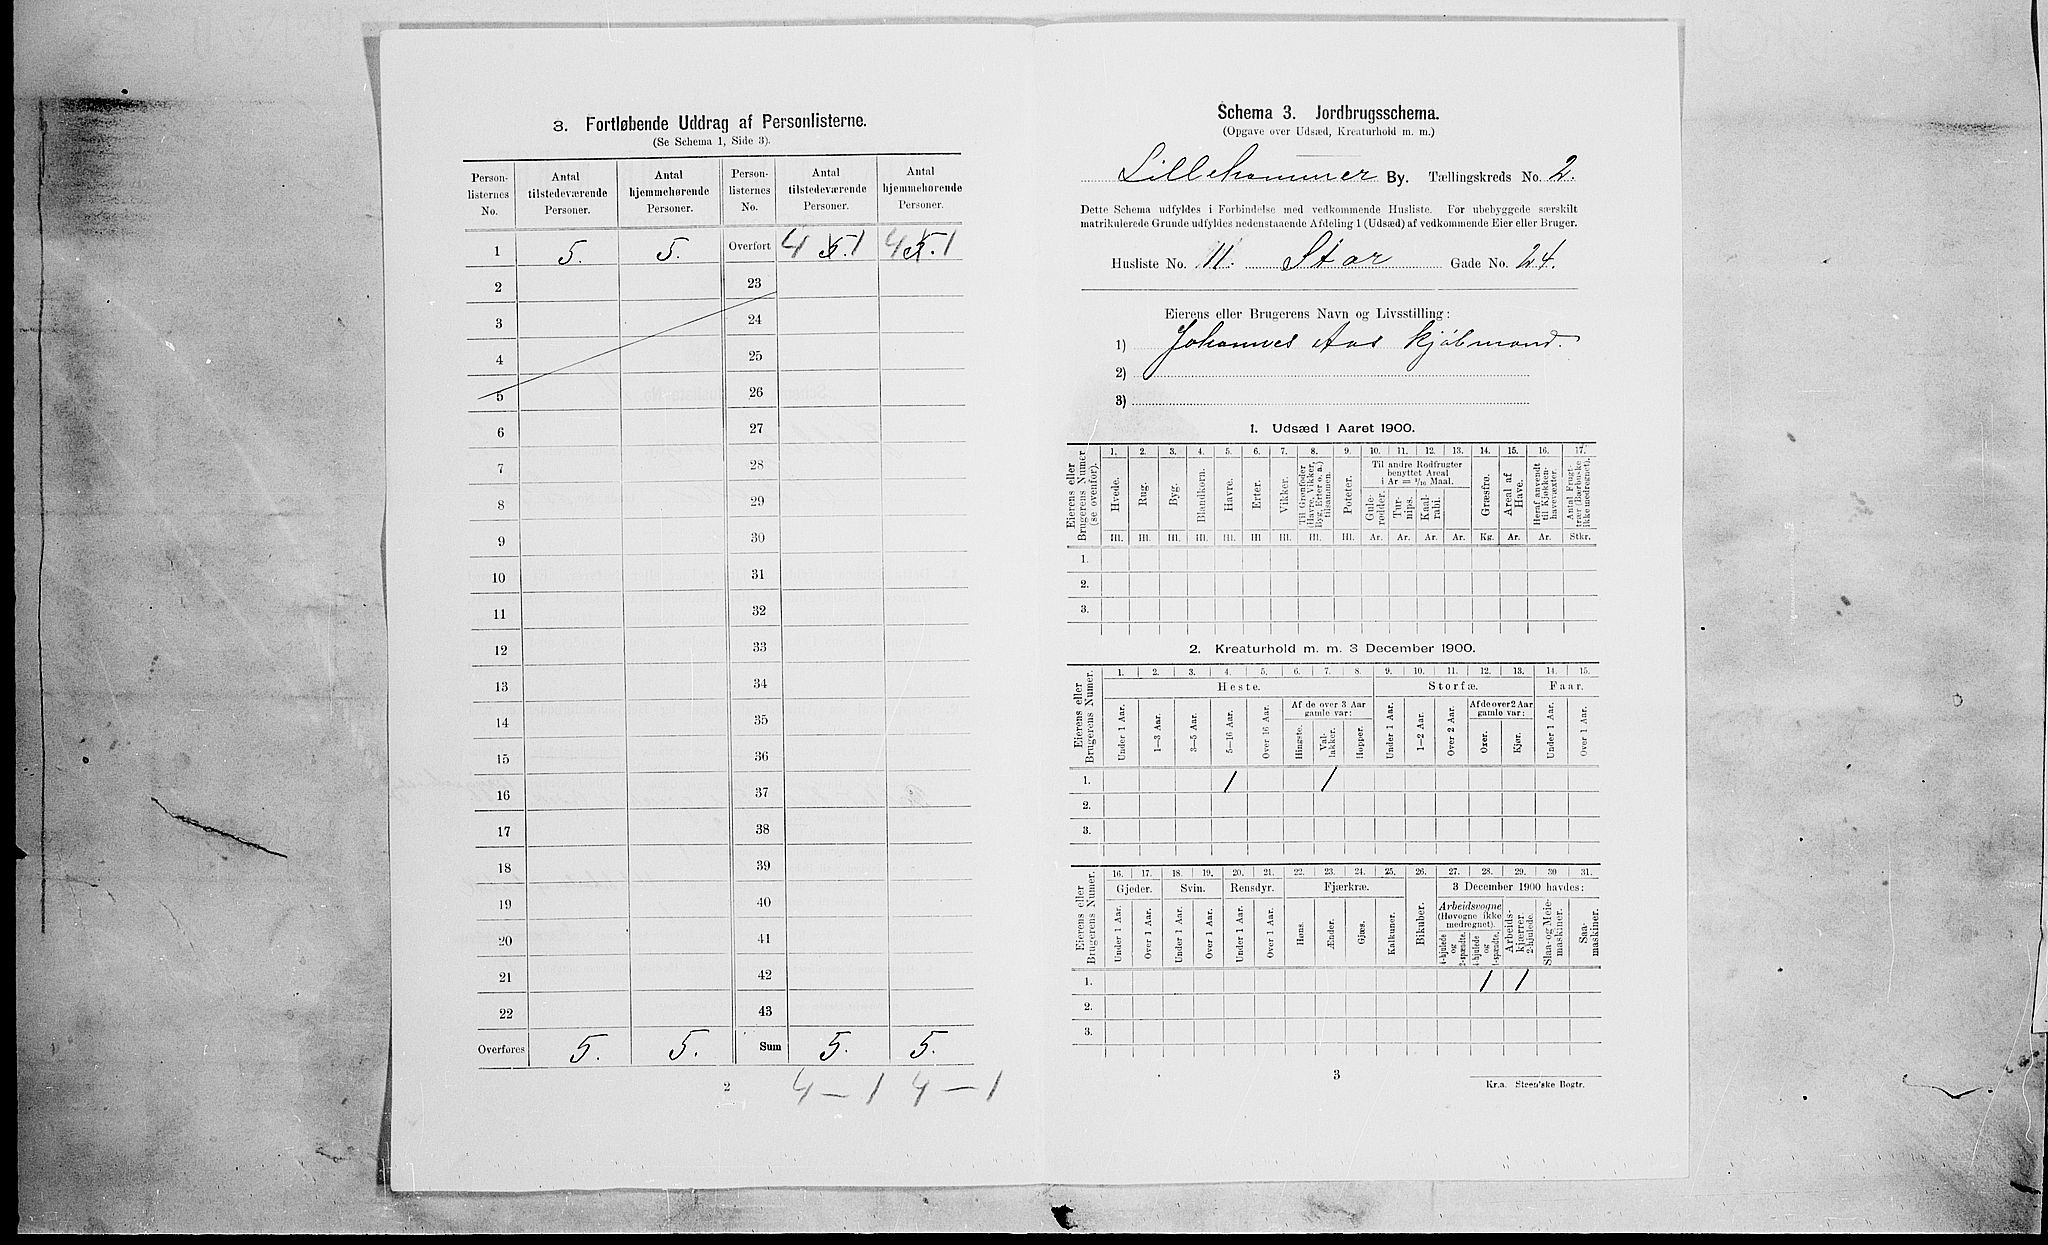 3. Fortløbende Uddrag af Personlisterne.
(Se Schema 1, Side 3).
Person-listernes No. Antal tilstedeværende Personer. Antal hjemmehørende Personer. Person-listernes No. Antal tilstedeværende Personer. Antal hjemmehørende Personer.
1 5. 5. Overført 4 5. 1 4 5. 1
2 23
3 24
4 25
5 26
6 27
7 28
8 29
9 30
10 31
11 32
12 33
13 34
14 35
15 36
16 37
17 38
18 39
19 40
20 41
21 42
22 43
Overføres 5. 5. Sum 5. 5.
2 4 – 1 4 – 1
Schema 3. Jordbrugsschema.
(Opgave over Udsæd, Kreaturhold m. m.)
Lillehammer By. Tællingskreds No. 2.
Dette Schema udfyldes i Forbindelse med vedkommende Husliste. For ubebyggede særskilt
matrikulerede Grunde udfyldes nedenstaaende Afdeling 1 (Udsæd) af vedkommende Eier eller Bruger.
Husliste No. 11. Stor Gade No. 24.
Eierens eller Brugerens Navn og Livsstilling:
1) Johannes Aas kjøbmand.
2)
3)
1. Udsæd i Aaret 1900.
Eierens eller Brugerens Numer (se ovenfor).
1. 2. 3. 4. 5. 6. 7. 8. 9. 10. 11. 12. 13. 14. 15. 16. 17.
Hvede. Rug. Byg. Blandkorn. Havre. Erter. Vikker. Til Grønfoder (Havre, Vikker, Byg, Erter o. a.) tilsammen. Poteter. Til andre Rodfrugter benyttet Areal i Ar = 1/10 Maal. Gulerødder. Turnips. Kaalrabi. Græsfrø. Areal af Have. Heraf anvendt til Kjøkkenhavevæxter. Antal Frugttrær (Bærbuske ikke medregnet).
Hl. Hl. Hl. Hl. Hl. Hl Hl. Hl. Hl. Ar. Ar. Ar. Ar. Kg. Ar. Ar. Stkr.
1.
2.
3.
2. Kreaturhold m. m. 3 December 1900.
Eierens eller Brugerens Numer.
1. 2. 3. 4. 5. 6. 7. 8. 9. 10. 11. 12. 13. 14. 15.
Heste. Storfæ. Faar.
Under 1 Aar. 1–3 Aar. 3–5 Aar. 5–16 Aar. Over 16 Aar. Af de over 3 Aar gamle var: Hingste. Vallakker. Hopper. Under 1 Aar. 1–2 Aar. Over 2 Aar. Af de over 2 Aar gamle var: Oxer. Kjør. Under 1 Aar. Over 1 Aar.
1. 1 1
2.
3.
Eierens eller Brugerens Numer.
16. 17. 18. 19. 20. 21. 22. 23. 24. 25. 26. 27. 28. 29. 30 31.
Gjeder. Svin. Rensdyr. Fjærkræ. Bikuber. 3 December 1900 havdes:
Under 1 Aar. Over 1 Aar. Under 1 Aar. Over 1 Aar. Under 1 Aar. Over 1 Aar. Høns. Ænder. Gjæs. Kalkuner. Arbeidsvogne (Høvogne ikke medregnet). 4-hjulede og 2-spændte. 4-hjulede og 1-spændte. Arbeidskjærrer 2-hjulede. Slaa- og Meiemaskiner. Saamaskiner.
1. 1 1
2.
3.
3
Kr.a. Steen'ske Bogtr.